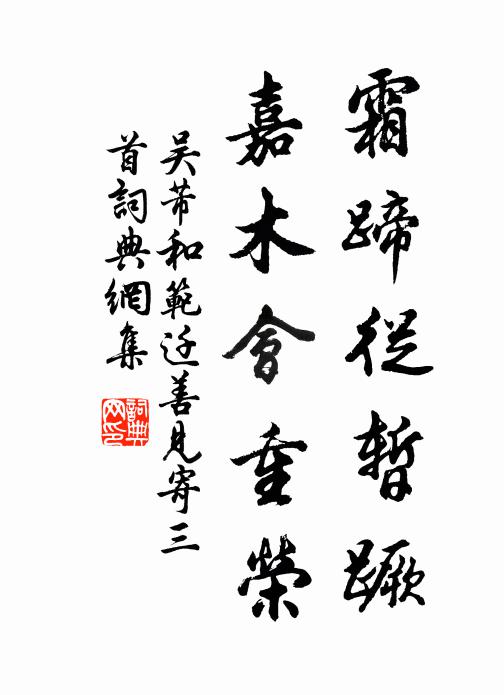 霜蹄從暫蹶
嘉木會重榮
吴芾和範迂善見寄三
首詞典網集
詞典网印